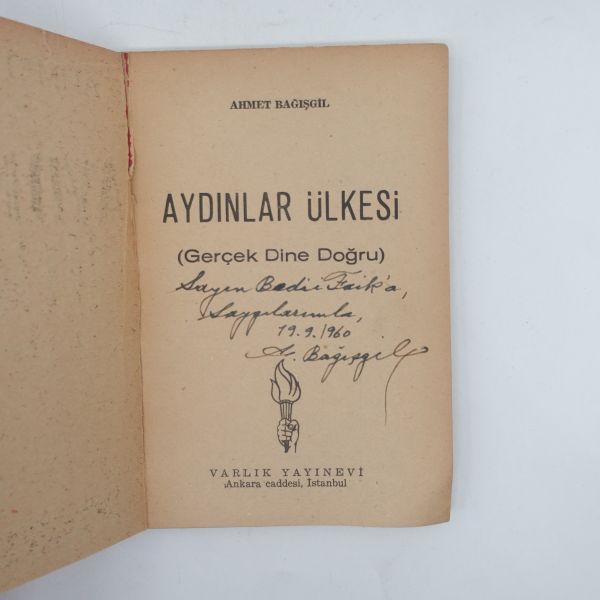 AHMET BAĞIŞGİL
AYDINLAR ÜLKESİ
(Gerçek Dine Doğru)
Sayın Bedii Faik'a,
Saygılarımla,
19.9.1960
A. Bağışgil
VARLIK YAYINEVİ
Ankara caddesi, İstanbul